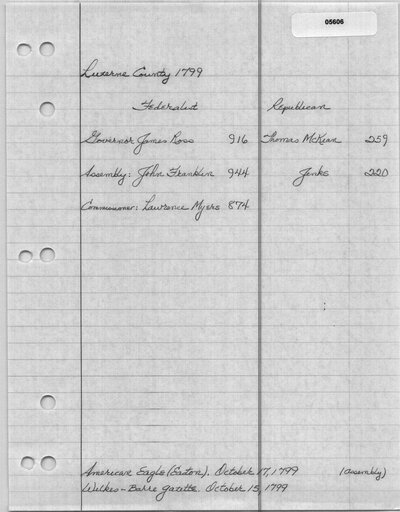 05606
Luzerne County 1799
Federalist Republican
Governor James Ross 916 Thomas McKean 259
Assembly: John Franklin 944 Jenks 220
Commissioner: Lawrence Myers 874
American Eagle (Easton). October 17, 1799 (assembly)
Wilkes-Barre Gazette. October 15, 1799